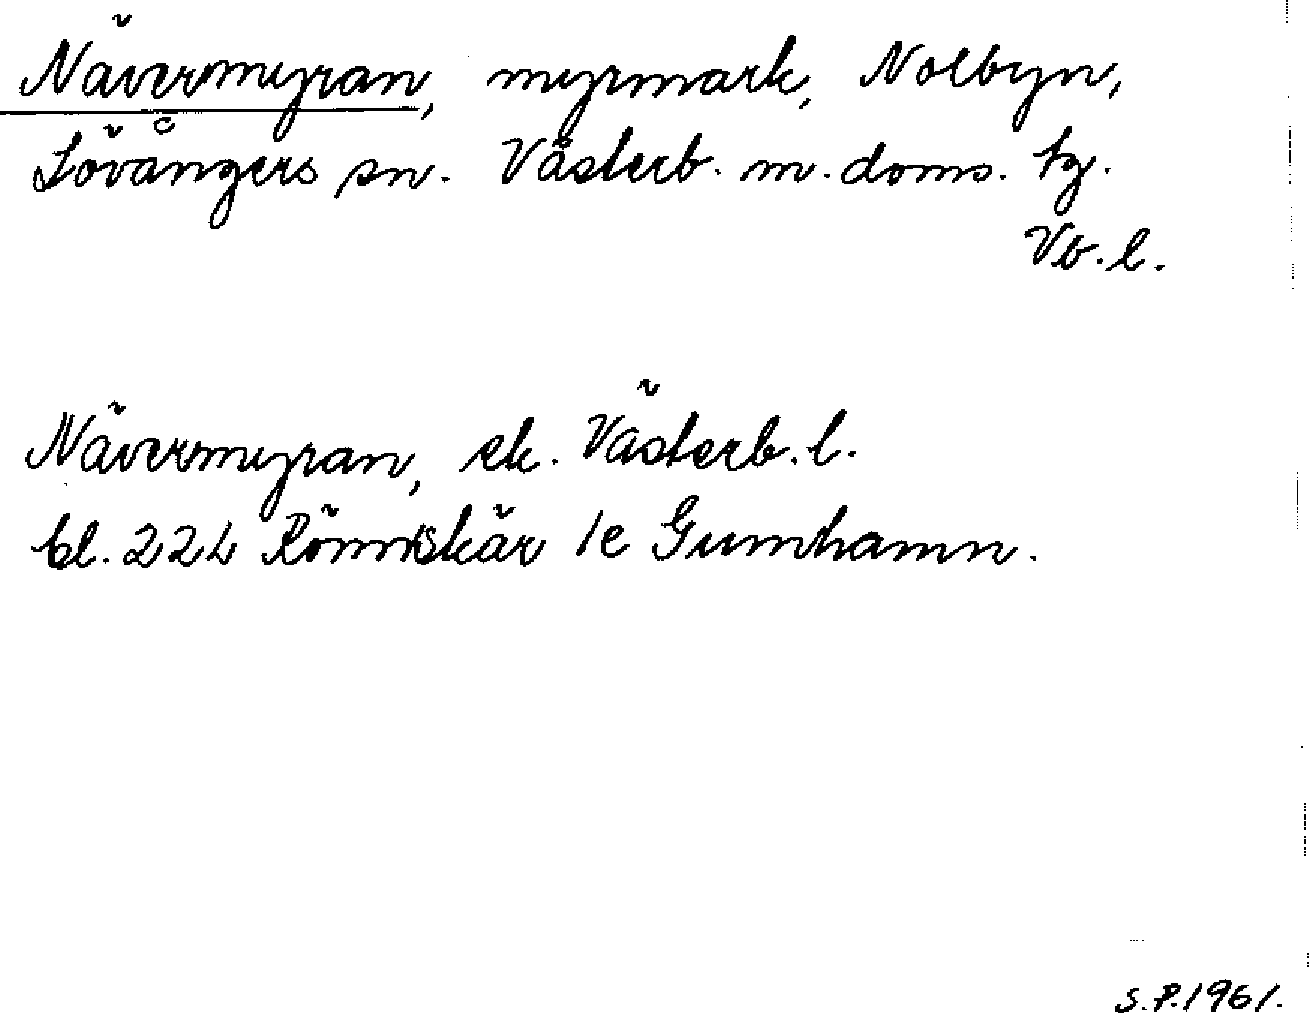 Nävermyran, myrmark, Nolbyn,
Lövångers sn. Västerb. m. doms. tg.
Vb. l.
Nävermyran, ek. Västerb. l.
bl. 22L Rönnskär 1e Gumhamn.
S.P. 1961.